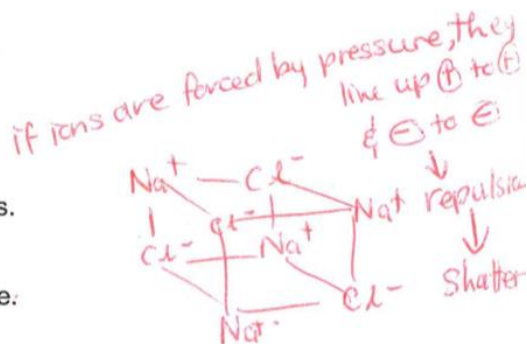 if ions are forced by pressure, they
line up ⊕ to ⊕
& ⊖ to ⊖
↓
repulsion
↓
shatter
s.
e.
Na⁺ Cl⁻
Cl⁻ Na⁺
Cl⁻ Na⁺
Na⁺ Cl⁻